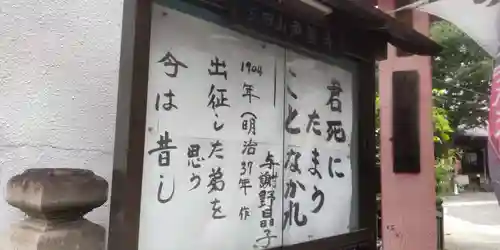 君死に
たまう
ことなかれ
与謝野晶子
1904年(明治37年作
出征した弟を
思う
今は昔し